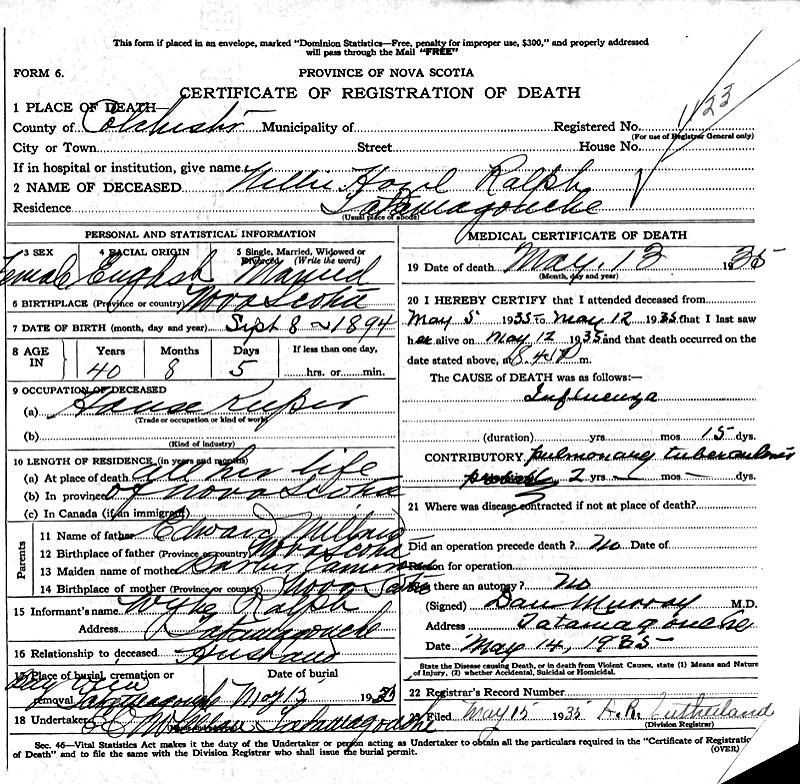 This form if placed in an envelope, marked "Dominion Statistics—Free, penalty for improper use, $300," and properly addressed
will pass through the Mail "FREE"
FORM 6.
PROVINCE OF NOVA SCOTIA
CERTIFICATE OF REGISTRATION OF DEATH
1 PLACE OF DEATH—
County of Colchester Municipality of Registered No. 1123
(For use of Registrar General only)
City or Town Street House No.
If in hospital or institution, give name
2 NAME OF DECEASED Nellie Hazel Ralph
Residence Tatamagouche
(Usual place of abode)
PERSONAL AND STATISTICAL INFORMATION
3 SEX 4 RACIAL ORIGIN 5 Single, Married, Widowed or Divorced (Write the word)
Female English Married
6 BIRTHPLACE (Province or country) Nova Scotia
7 DATE OF BIRTH (month, day and year) Sept 8 1894
8 AGE IN Years Months Days If less than one day,
40 8 5 hrs. or min.
9 OCCUPATION OF DECEASED
(a) House Keeper
(Trade or occupation or kind of work)
(b)
(Kind of industry)
10 LENGTH OF RESIDENCE (in years and months)
(a) At place of death all her life
(b) In province of Nova Scotia
(c) In Canada (if an immigrant)
Parents
11 Name of father Edward Millard
12 Birthplace of father (Province or country) Nova Scotia
13 Maiden name of mother Cameron
14 Birthplace of mother (Province or country) Nova Scotia
15 Informant's name Ralph
Address Tatamagouche
16 Relationship to deceased Husband
17 Place of burial, cremation or removal Date of burial
Tatamagouche May 15 1935
18 Undertaker Tatamagouche
MEDICAL CERTIFICATE OF DEATH
19 Date of death May, 13 1935
(Month, day and year)
20 I HEREBY CERTIFY that I attended deceased from
May 5 1935 to May 12 1935 that I last saw
her alive on May 12 1935 and that death occurred on the
date stated above, at 8.45 P m.
The CAUSE of DEATH was as follows:—
Influenza
(duration) yrs. mos 15 dys.
CONTRIBUTORY. pulmonary tuberculosis
2 yrs — mos — dys.
21 Where was disease contracted if not at place of death?
Did an operation precede death? No Date of
Reason for operation.
Was there an autopsy? No
(Signed) Dan Murray M.D.
Address Tatamagouche
Date May 14, 1935
State the Disease causing Death, or in death from Violent Causes, state (1) Means and Nature
of Injury, (2) whether Accidental, Suicidal or Homicidal.
22 Registrar's Record Number
23 Filed May 15 1935 A.R. Sutherland
(Division Registrar)
Sec. 46—Vital Statistics Act makes it the duty of the Undertaker or person acting as Undertaker to obtain all the particulars required in the "Certificate of Registration
of Death" and to file the same with the Division Registrar who shall issue the burial permit.
(OVER)